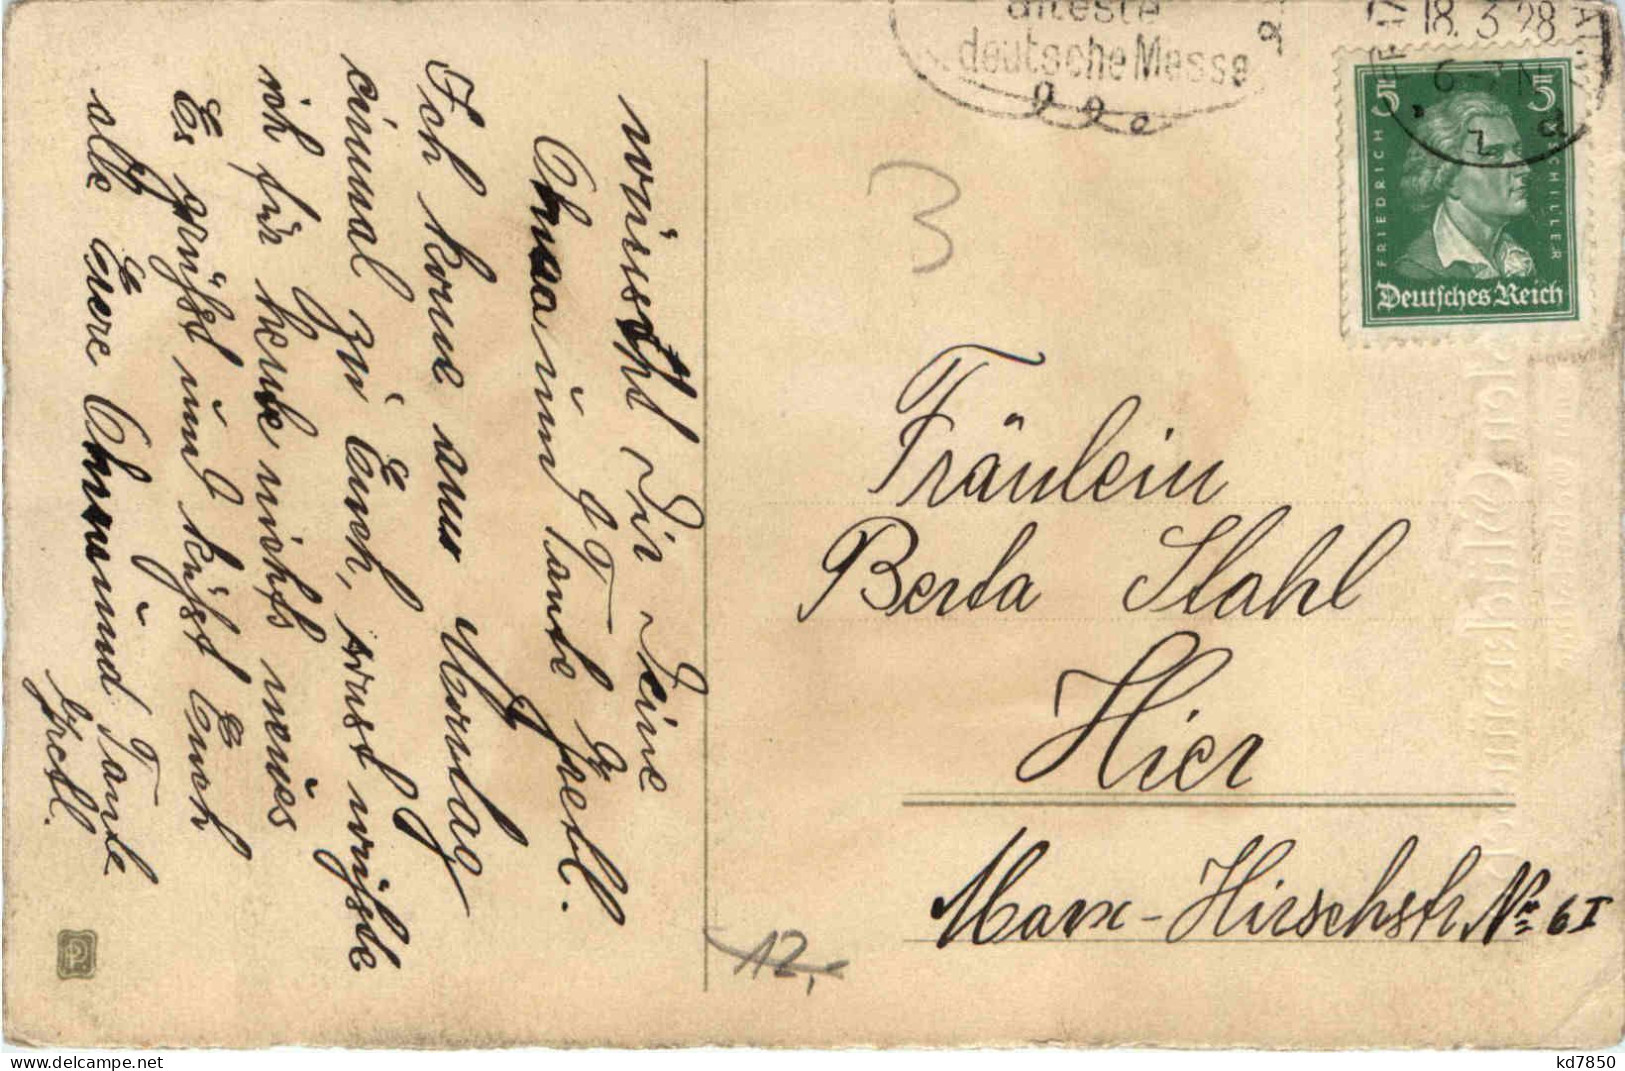 älteste
deutsche Messe
18. 3. 28
6-7 N
5 5
FRIEDRICH SCHILLER
Deutsches Reich
3
Fräulein
Berta Stahl
Hier
Marx-Hirschstr. № 6 I
12,-
wünscht Dir Deine
Oma und Tante Gretl.
Ich kome am Montag
einmal zu Euch, sonst wüßte
ich für heute nichts neues
Es grüßt und küßt Euch
alle Euere Oma und Tante
Gretl.
kd7850